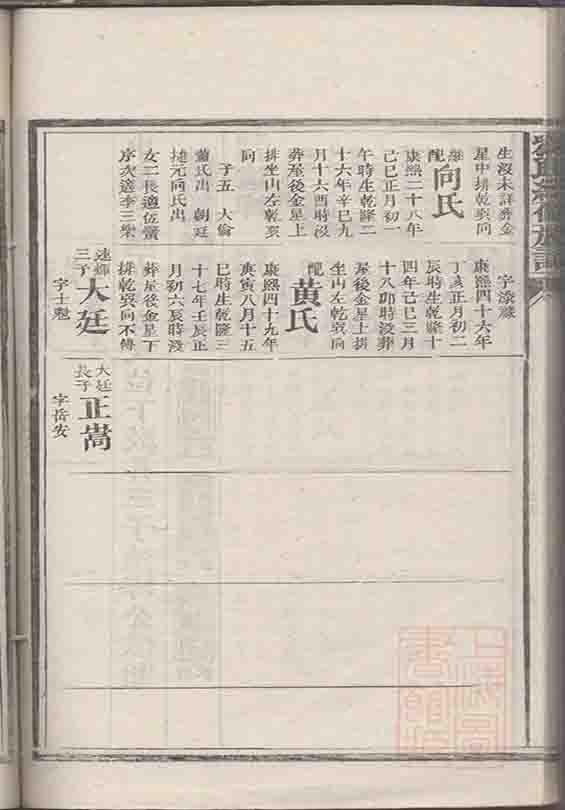 生沒未詳葬金
星中排乾巽向
繼配向氏
康熙二十八年
己巳正月初一
午時生乾隆二
十六年辛巳九
月十六酉時沒
葬屋後金星上
排坐山左乾巽
向
子五 大倫
蕭氏出 朝廷
廷元向氏出
女二長適伍黌
序次適李三樂
字濚巌
康熙四十六年
丁亥正月初二
辰時生乾隆十
四年己巳三月
十八卯時沒葬
屋後金星上排
坐山左乾巽向
配黄氏
康熙四十九年
庚寅八月十五
巳時生乾隆三
十七年壬辰正
月初六辰時沒
葬屋後金星下
排乾巽向不傳
三子大廷
字士魁
大廷長子正嵩
字岳安
上海圖書館藏